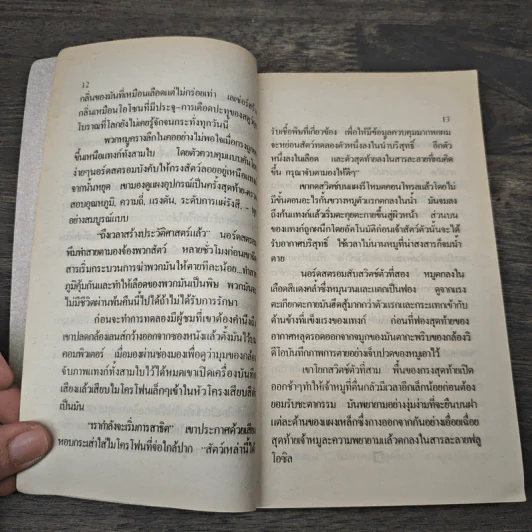 12
กลิ่นของมันที่เหมือนเลือดแต่ไม่กร่อยเท่า
กลิ่นเหมือนโอโซนที่มีประจุ-การเดือดปะทุของ
โบราณที่โลกยังไม่เคยรู้จักจนกระทั่งทุกวันนี้
พวกหมูครางลึกในคออย่างไม่พอใจเมื่อกรง
ขึ้นเหนือแทงก์ทั้งสามใบ โดยตัวควบคุมแบบ
ง่ายๆนอร์ดสตรอมบังคับให้กรงสัตว์ลอยอยู่เหนือ
จากนั้นหยุด เขามองดูแผงอุปกรณ์เป็นครั้งสุดท้าย-ตรวจ
สอบอุณหภูมิ, ความถี่, แรงดัน, ระดับการแผ่รังสี,
อย่างสมบูรณ์แบบ
"ถึงเวลาสร้างประวัติศาสตร์แล้ว" นอร์ดสตรอม
พึมพำสายตามองจ้องพวกสัตว์ หลายชั่วโมงก่อนเขา
สารเริ่มกระบวนการฆ่าพวกมันให้ตายทีละน้อย...ทำลาย
ภูมิคุ้มกันและทำให้เลือดของพวกมันเป็นพิษ พวกมันจะ
ไม่มีชีวิตผ่านพ้นคืนนี้ไปได้ถ้าไม่ได้รับการรักษา
ก่อนจะทำการทดลองมีผู้ชมที่เขาต้องคำนึงถึง
เขาปลดกล้องเลนส์กว้างออกจากซองหนังแล้วตั้งมันไว้บน
คอมพิวเตอร์ เมื่อมองผ่านช่องมองเพื่อดูว่ามุมของกล้อง
จับภาพแทงก์ทั้งสามใบไว้ได้หมดเขาเปิดเครื่องบันทึก
เสียงแล้วเสียบไมโครโฟนเล็กๆเข้าในหัวโครงเสียบสีดำ
เป็นมัน
"เรากำลังจะเริ่มการสาธิต" เขาประกาศด้วยเสียง
หอบกระเส่าใส่ไมโครโฟนที่จ่อใกล้ปาก "สัตว์เหล่านี้ได้
13
รับเชื้อพิษที่เกี่ยวข้อง เพื่อให้มีข้อมูลควบคุมมากพอผม
จะหย่อนสัตว์ทดลองตัวหนึ่งลงในน้ำบริสุทธิ์ อีกตัว
หนึ่งลงในเลือด และตัวสุดท้ายลงในสารละลายที่ผมคิด
ขึ้น กรุณาจับตามองให้ดีๆ"
เขากดสวิตช์บนแผงรีโหมดคอนโทรลแล้วโดยไม่
มีขั้นตอนอะไรกั้นขวางหมูตัวแรกตกลงในน้ำ มันจมลง
ถึงก้นแทงก์แล้วเริ่มตะกุยตะกายขึ้นสู่ผิวหน้า ส่วนบน
ของแทงก์ถูกผนึกโดยอัตโนมัติก่อนเจ้าสัตว์ตัวนั้นจะได้
รับอากาศบริสุทธิ์ ใช้เวลาไม่นานหมูที่น่าสงสารก็จมน้ำ
ตาย
นอร์ดสตรอมสับสวิตช์ตัวที่สอง หมูตกลงใน
เลือดสีแดงคล้ำซึ่งหมุนวนและแตกเป็นฟอง ดูจากแรง
ตะเกียกตะกายมันฮึดสู้มากกว่าตัวแรกและกระแทกเข้ากับ
ด้านข้างที่แข็งแรงของแทงก์ ก่อนที่ฟองสุดท้ายของ
อากาศหลุดรอดออกจากจมูกของมันตากะพริบของกล้องวี
ดีโอบันทึกภาพการตายอย่างเจ็บปวดของหมูเอาไว้
เขาโยกสวิตช์ตัวที่สาม พื้นของกรงสุดท้ายเปิด
ออกช้าๆทำให้เจ้าหมูที่ตื่นกลัวมีเวลาอีกเล็กน้อยก่อนต้อง
ยอมรับชะตากรรม มันพยายามงุ่มง่ามที่จะยืนบนฝา
แต่ละด้านของแผงเหล็กซึ่งกางออกจากกันอย่างเอื่อยเฉื่อย
สุดท้ายเจ้าหมูละความพยายามแล้วตกลงในสารละลายฟลู
โอซิล